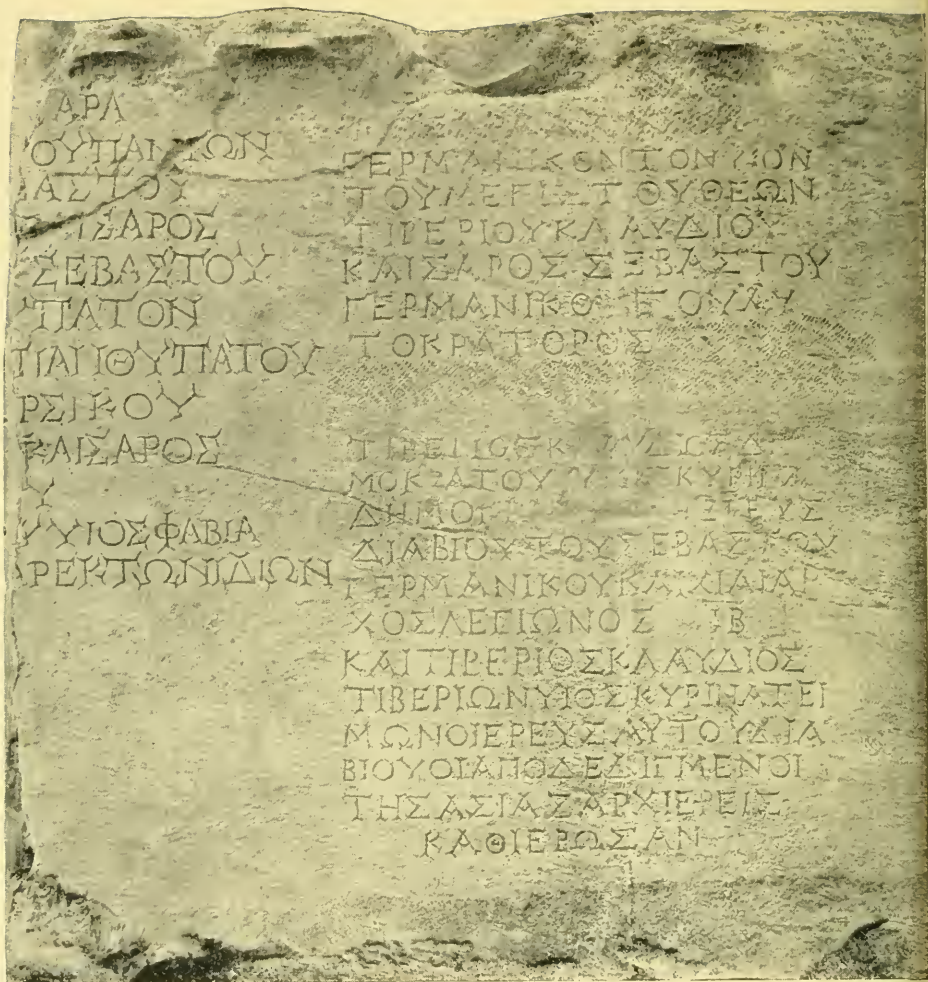 ΑΡΛ
ΟΥΠΑΝΤΩΝ
ΑΣΤΟΥ
ΙΣΑΡΟΣ
ΣΕΒΑΣΤΟΥ
ΠΑΤΟΝ
ΠΑΝΘΥΠΑΤΟΥ
ΡΣΙΚΟΥ
ΚΑΙΣΑΡΟΣ
Υ
ΥΥΙΟΣΦΑΒΙΑ
ΡΕΚΤΩΝΙΔΙΩΝ
ΓΕΡΜΑΝΙΚΟΝΤΟΝΥΙΟΝ
ΤΟΥΜΕΓΙΣΤΟΥΘΕΩΝ
ΤΙΒΕΡΙΟΥΚΛΑΥΔΙΟΥ
ΚΑΙΣΑΡΟΣΣΕΒΑΣΤΟΥ
ΓΕΡΜΑΝΙΚΟΥΤΟΥΑΥ
ΤΟΚΡΑΤΟΡΟΣ
ΤΙΒΕΡΙΟΣΚΛΑΥΔΙΟΣΔΑ
ΜΟΚΡΑΤΟΥ ΚΥΡΙΝΑ
ΔΗΜΟ ΙΕΡΕΥΣ
ΔΙΑΒΙΟΥΤΟΥΣΕΒΑΣΤΟΥ
ΓΕΡΜΑΝΙΚΟΥΚΑΙΧΙΛΙΑΡ
ΧΟΣΛΕΓΙΩΝΟΣ ΙΒ
ΚΑΙΤΙΒΕΡΙΟΣΚΛΑΥΔΙΟΣ
ΤΙΒΕΡΙΩΝΥΙΟΣΚΥΡΙΝΑΤΕΙ
ΜΩΝΟΙΕΡΕΥΣΑΥΤΟΥΔΙΑ
ΒΙΟΥΟΙΑΠΟΔΕΔΙΓΜΕΝΟΙ
ΤΗΣΑΣΙΑΣΑΡΧΙΕΡΕΙΣ
ΚΑΘΙΕΡΩΣΑΝ